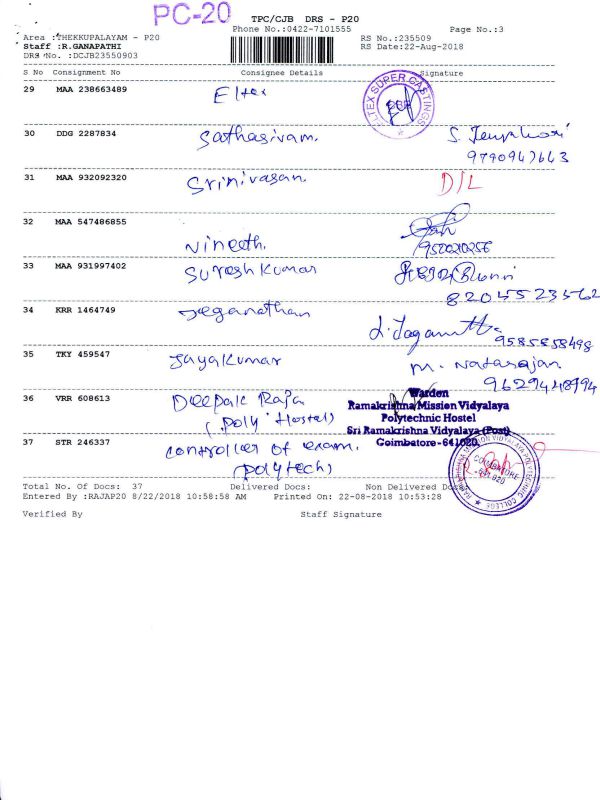 PC-20
TPC/CJB DRS - P20
Phone No.:0422-7101555 Page No.:3
Area :THEKKUPALAYAM - P20 RS No.:235509
Staff :R.GANAPATHI RS Date:22-Aug-2018
DRS No. :DCJB23550903
S No Consignment No Consignee Details Signature
29 MAA 238663489 Eltex
ELTEX SUPER CASTINGS
CBE
30 DDG 2287834 Sathasivam.
9790947663
31 MAA 932092320 Srinivasan. D/L
32 MAA 547486855
Nineeth.
33 MAA 931997402 Suresh Kumar
8204552 3562
34 KRR 1464749 Jeganathan
9585858498
35 TKY 459547 Jayakumar M. Natarajan
9629448994
36 VRR 608613 Deepak Raja
(Poly Hostel)
Warden
Ramakrishna Mission Vidyalaya
Polytechnic Hostel
Sri Ramakrishna Vidyalaya (Post)
Coimbatore - 641020.
37 STR 246337 Controller of exam.
(Polytech)
RAMAKRISHNA MISSION VIDYALAYA POLYTECHNIC COLLEGE
COIMBATORE
641 020
Total No. Of Docs: 37 Delivered Docs: Non Delivered Docs:
Entered By :RAJAP20 8/22/2018 10:58:58 AM Printed On: 22-08-2018 10:53:28
Verified By Staff Signature